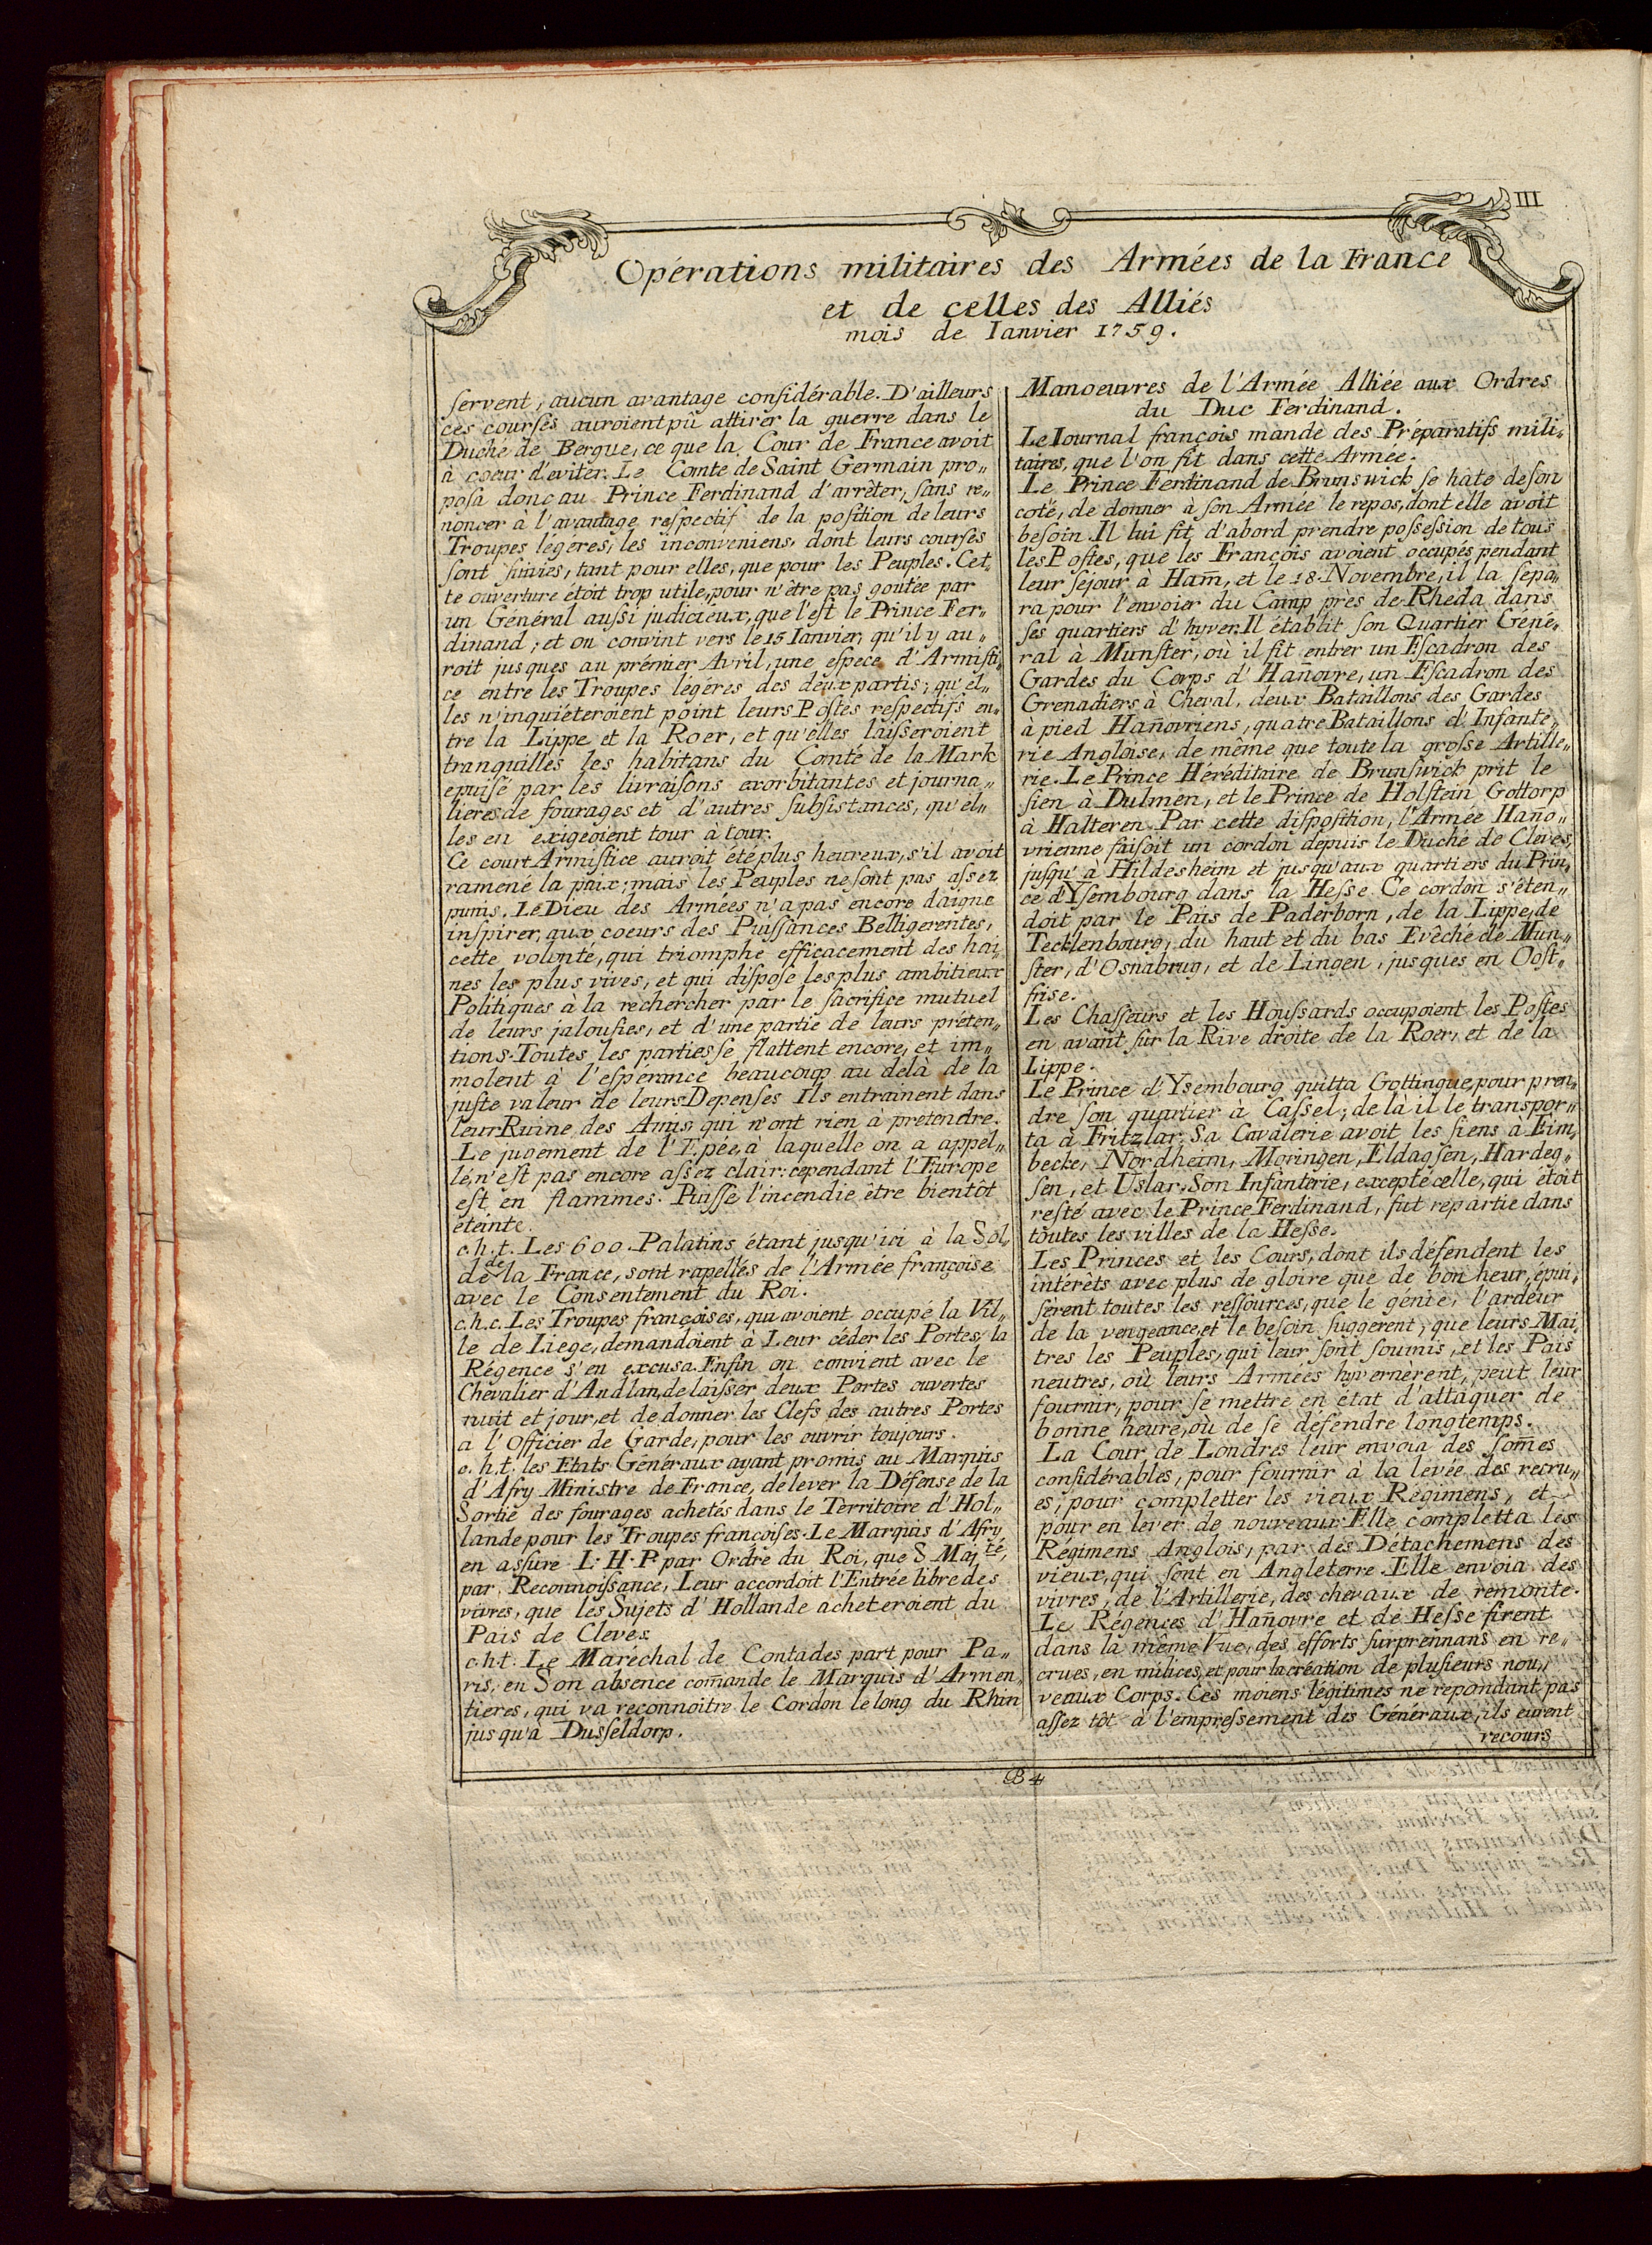 III
Opérations militaires des Armées de la France
et de celles des Alliés
mois de Ianvier 1759.
ſervent, aucun avantage conſidérable. D'ailleurs
ces courſes auroient pû attirer la guerre dans le
Duché de Bergue, ce que la Cour de France avoit
à coeur d'eviter. Le Comte de Saint Germain pro„
poſa donc au Prince Ferdinand d'arrêter, ſans re„
noncer à l'avantage reſpectif de la poſition de leurs
Troupes légéres, les inconveniens, dont leurs courſes
ſont ſuivies, tant pour elles, que pour les Peuples. Cet„
te ouverture étoit trop utile, pour n'être pas goutée par
un Général auſſi judicieux, que l'eſt le Prince Fer„
dinand; et on convint vers le 15 Ianvier, qu'il y au„
roit juſques au prémier Avril, une eſpece d'Armiſti„
ce entre les Troupes légéres des deux partis; qu'el„
les n'inquiéteroient point leurs Poſtes reſpectifs en„
tre la Lippe et la Roer, et qu'elles laiſſeroient
tranquilles les habitans du Comté de la Mark
epuiſé par les livraiſons exorbitantes et journa„
lieres de fourages et d'autres ſubſistances, qu'el„
les en exigeoient tour à tour.
Ce court Armiſtice auroit été plus heureux, s'il avoit
ramené la paix; mais les Peuples ne ſont pas aſsez
punis. Le Dieu des Armées n'a pas encore daigne
inſpirer, aux coeurs des Puiſſances Belligerentes,
cette volonté, qui triomphe efficacement des hai
nes les plus vives, et qui diſpoſe les plus ambitieux
Politiques à la rechercher par le ſacrifice mutuel
de leurs jalouſies, et d'une partie de leurs préten„
tions. Toutes les parties ſe flattent encore, et im„
molent à l'eſpérance beaucoup au delà de la
juſte valeur de leurs Depenſes Ils entrainent dans
leur Ruine des Amis, qui n'ont rien à prétendre.
Le jugement de l'Epée, à laquelle on a appel„
lé, n'eſt pas encore aſsez clair: cependant l'Europe
eſt en flammes. Puiſſe l'incendie être bientôt
éteinte.
c.h.t. Les 600. Palatins étant juſqu'ici à la Sol„
de de la France, ſont rapellés de l'Armée françoise
avec le Conſentement du Roi.
c.h.c. Les Troupes françoises, qui avoient occupé la Vil„
le de Liege, demandoient à Leur céder les Portes, la
Régence s'en excusa. Enfin on convient avec le
Chevalier d'Andlan, de laiſser deux Portes ouvertes
nuit et jour, et de donner les Clefs des autres Portes
a l'Officier de Garde, pour les ouvrir toujours.
c.h.t. les Etats Généraux ayant promis au Marquis
d'Afry Ministre de France, de lever la Défense de la
Sortie des fourages achetés dans le Territoire d'Hol„
lande pour les Troupes françoiſes. Le Marquis d'Afry,
en aſsure L. H. P. par Ordre du Roi, que S Maj.té,
par Reconnoiſſance, Leur accordoit l'Entrée libre des
vivres, que les Sujets d'Hollande acheteroient du
Pais de Cleves.
c.h.t. Le Maréchal de Contades part pour Pa„
ris, en Son absence com̄ande le Marquis d'Armen„
tieres, qui va reconnoitre le Cordon le long du Rhin
jusqu'a Duſſeldorp.
Manoeuvres de l'Armée Alliée aux Ordres
du Duc Ferdinand.
Le Iournal françois mande des Préparatifs mili„
taires, que l'on fit dans cette Armée.
Le Prince Ferdinand de Brunswick ſe hate de ſon
coté, de donner à ſon Armée le repos, dont elle avoit
beſoin. Il lui fit d'abord prendre poſſeſsion de tous
les Poſtes, que les François avoient occupés pendant
leur ſejour à Ham̄, et le 18. Novembre, il la ſepa„
ra pour l'envoier du Camp près de Rheda dans
ſes quartiers d'hyver. Il établit ſon Quartier Géné„
ral à Munſter, où il fit entrer un Eſcadron des
Gardes du Corps d'Han̄ovre, un Eſcadron des
Grenadiers à Cheval, deux Bataillons des Gardes
à pied Han̄ovriens, quatre Bataillons d'Infante„
rie Angloise, de même que toute la groſse Artille„
rie. Le Prince Héréditaire de Brunſwick prit le
ſien à Dulmen, et le Prince de Holſtein Gottorp
à Halteren. Par cette diſpoſition, l'Armée Hano„
vrienne faiſoit un cordon depuis le Duché de Cleves,
juſqu'à Hildesheim et juſqu'aux quartiers du Prin„
ce d'Yſembourg dans la Heſſe. Ce cordon s'éten„
doit par le Païs de Paderborn, de la Lippe, de
Tecklenbourg, du haut et du bas Evêché de Mun„
ſter, d'Osnabrug, et de Lingen, jusques en Ooſt„
friſe.
Les Chaſſeurs et les Houſsards occupoient les Poſtes
en avant ſur la Rive droite de la Roer, et de la
Lippe.
Le Prince d'Yſembourg quitta Gottingue, pour pren„
dre ſon quartier à Caſſel; de là il le transpor„
ta à Fritzlar. Sa Cavalerie avoit les ſiens à Eim„
becke, Nordheim, Moringen, Eldagſen, Hardeg„
ſen, et Uslar. Son Infanterie, excepté celle, qui étoit
reſté avec le Prince Ferdinand, fut repartie dans
toutes les villes de la Heſse.
Les Princes et les Cours, dont ils défendent les
intérêts avec plus de gloire que de bonheur, épui„
ſèrent toutes les reſſources, que le génie, l'ardeur
de la vengeance, et le beſoin ſuggerent, que leurs Mai„
tres les Peuples, qui leur ſont ſoumis, et les Païs
neutres, où leurs Armées hyvernèrent, peut leur
fournir, pour ſe mettre en état d'attaquer de
bonne heure, où de ſe defendre longtemps.
La Cour de Londres leur envoia des ſom̄es
conſidérables, pour fournir à la levée des recru„
es, pour completter les vieux Régimens, et
pour en lever de nouveaux. Elle completta les
Régimens Anglois, par des Détachemens des
vieux, qui ſont en Angleterre. Elle envoia des
vivres, de l'Artillerie, des chevaux de remonte.
Le Régences d'Han̄ovre et de Heſse firent
dans la même Vue, des efforts ſurprennans en re„
crues, en milices, et pour la création de plusieurs nou„
veaux Corps. Ces moiens légitimes ne repondant pas
aſſez tôt à l'empreſsement des Généraux, ils eurent
recours
B 4